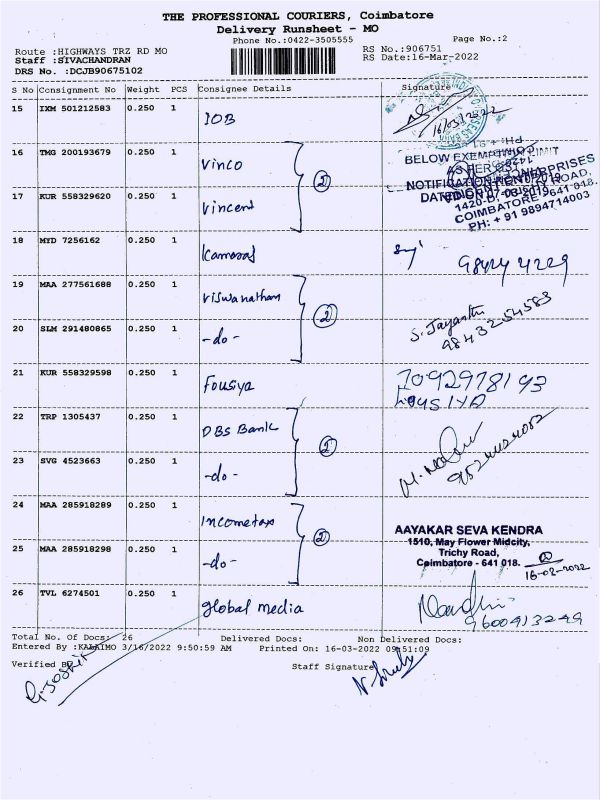 THE PROFESSIONAL COURIERS, Coimbatore
Delivery Runsheet - MO
Phone No.:0422-3505555 Page No.:2
Route :HIGHWAYS TRZ RD MO RS No.:906751
Staff :SIVACHANDRAN RS Date:16-Mar-2022
DRS No. :DCJB90675102
S No Consignment No Weight PCS Consignee Details Signature
15 IXM 501212583 0.250 1 IOB 16/03/2022
16 TMG 200193679 0.250 1 Vinco
BELOW EXEMPTION LIMIT
AS PER GST
NOTIFICATION
DATED 07-03-2019
COIMBATORE - 641 018.
PH: + 91 9894714003
17 KUR 558329620 0.250 1 Vincent
2
18 MYD 7256162 0.250 1 Kamaraj
19 MAA 277561688 0.250 1 Viswanatham
2
S. Jayanthi
98432 54583
20 SLM 291480865 0.250 1 -do-
21 KUR 558329598 0.250 1 Fousiya 7092978193
22 TRP 1305437 0.250 1 DBS Bank
2
23 SVG 4523663 0.250 1 -do-
24 MAA 285918289 0.250 1 Incometax
2
AAYAKAR SEVA KENDRA
1510, May Flower Midcity,
Trichy Road,
Coimbatore - 641 018.
16-03-2022
25 MAA 285918298 0.250 1 -do-
26 TVL 6274501 0.250 1 global media
9600413249
Total No. Of Docs: 26 Delivered Docs: Non Delivered Docs:
Entered By :KALAIMO 3/16/2022 9:50:59 AM Printed On: 16-03-2022 09:51:09
Verified By Staff Signature